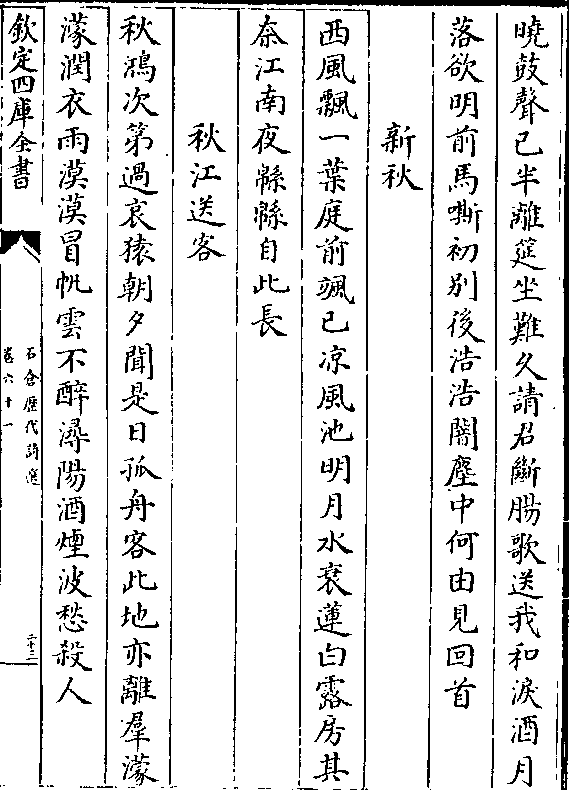 曉鼓聲已半離筵坐難久請君斷腸歌送我和淚酒月
落欲明前馬嘶初别後浩浩闇塵中何由見回首
新秋
西風飄一葉庭前颯已凉風池明月水衰蓮白露房其
奈江南夜緜緜自此長
秋江送客
秋鴻次第過哀猿朝夕聞是日孤舟客此地亦離羣濛
濛潤衣雨漠漠冒帆雲不醉潯陽酒煙波愁殺人
欽定四庫全書
石倉歷代詩選
卷六十一
二十三